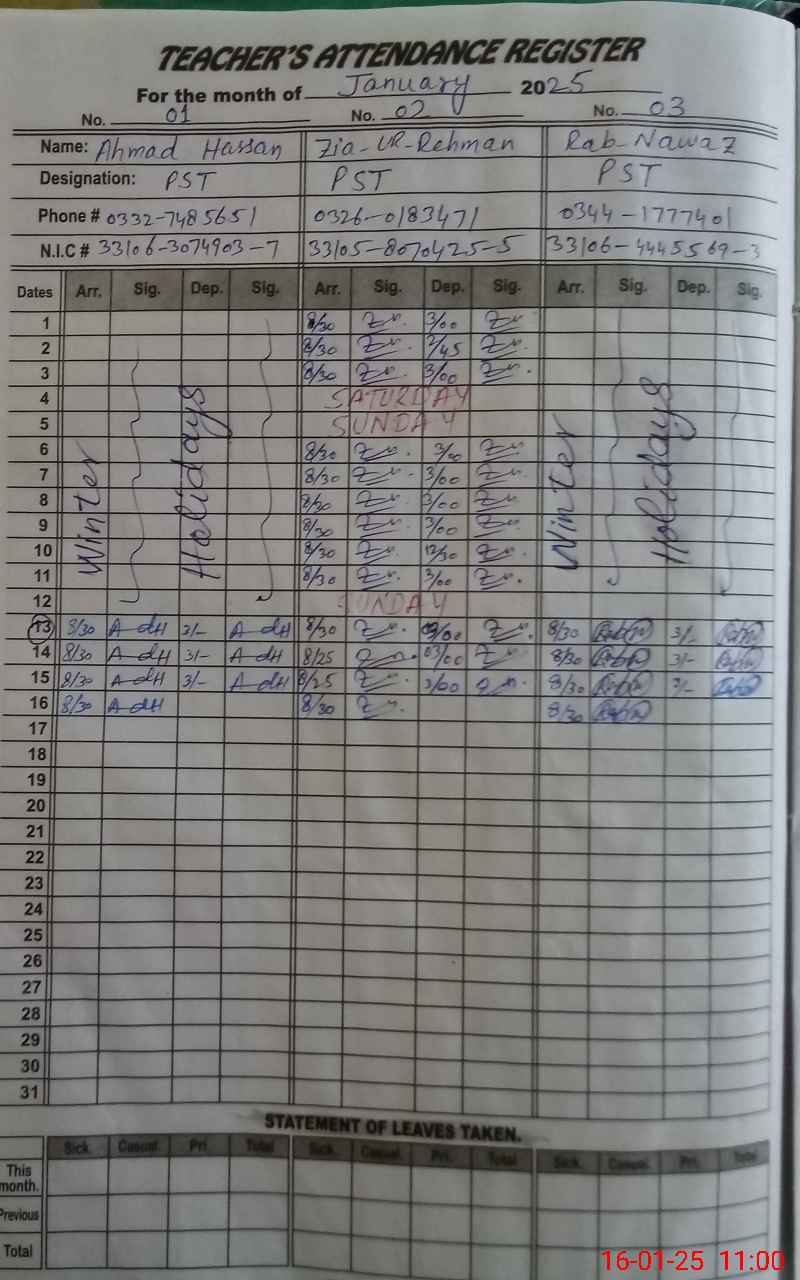 TEACHER'S ATTENDANCE REGISTER
For the month of January 2025
No. 01 No. 02 No. 03
Name: Ahmad Hassan Zia-UR-Rehman Rab-Nawaz
Designation: PST PST PST
Phone # 0332-7485651 0326-0183471 0344-1777401
N.I.C # 33106-3074903-7 33105-8070425-5 33106-4445569-3
Dates Arr. Sig. Dep. Sig. Arr. Sig. Dep. Sig. Arr. Sig. Dep. Sig.
1 8/30 3/00
2 8/30 2/45
3 8/30 3/00
4 SATURDAY
5 SUNDAY
6 8/30 3/00
7 8/30 3/00
8 8/30 3/00
9 8/30 3/00
10 8/30 12/30
11 8/30 3/00
12 SUNDAY
Winter Holidays Winter Holidays
13 8/30 A dH 3/- A dH 8/30 03/00 8/30 3/-
14 8/30 A dH 3/- A dH 8/25 03/00 8/30 3/-
15 8/30 A dH 3/- A dH 8/25 3/00 8/30 3/-
16 8/30 A dH 8/30 8/30
17
18
19
20
21
22
23
24
25
26
27
28
29
30
31
STATEMENT OF LEAVES TAKEN.
Sick. Casual. Pri. Total Sick. Casual. Pri. Total Sick. Casual. Pri. Total
This
month.
Previous
Total
16-01-25 11:00